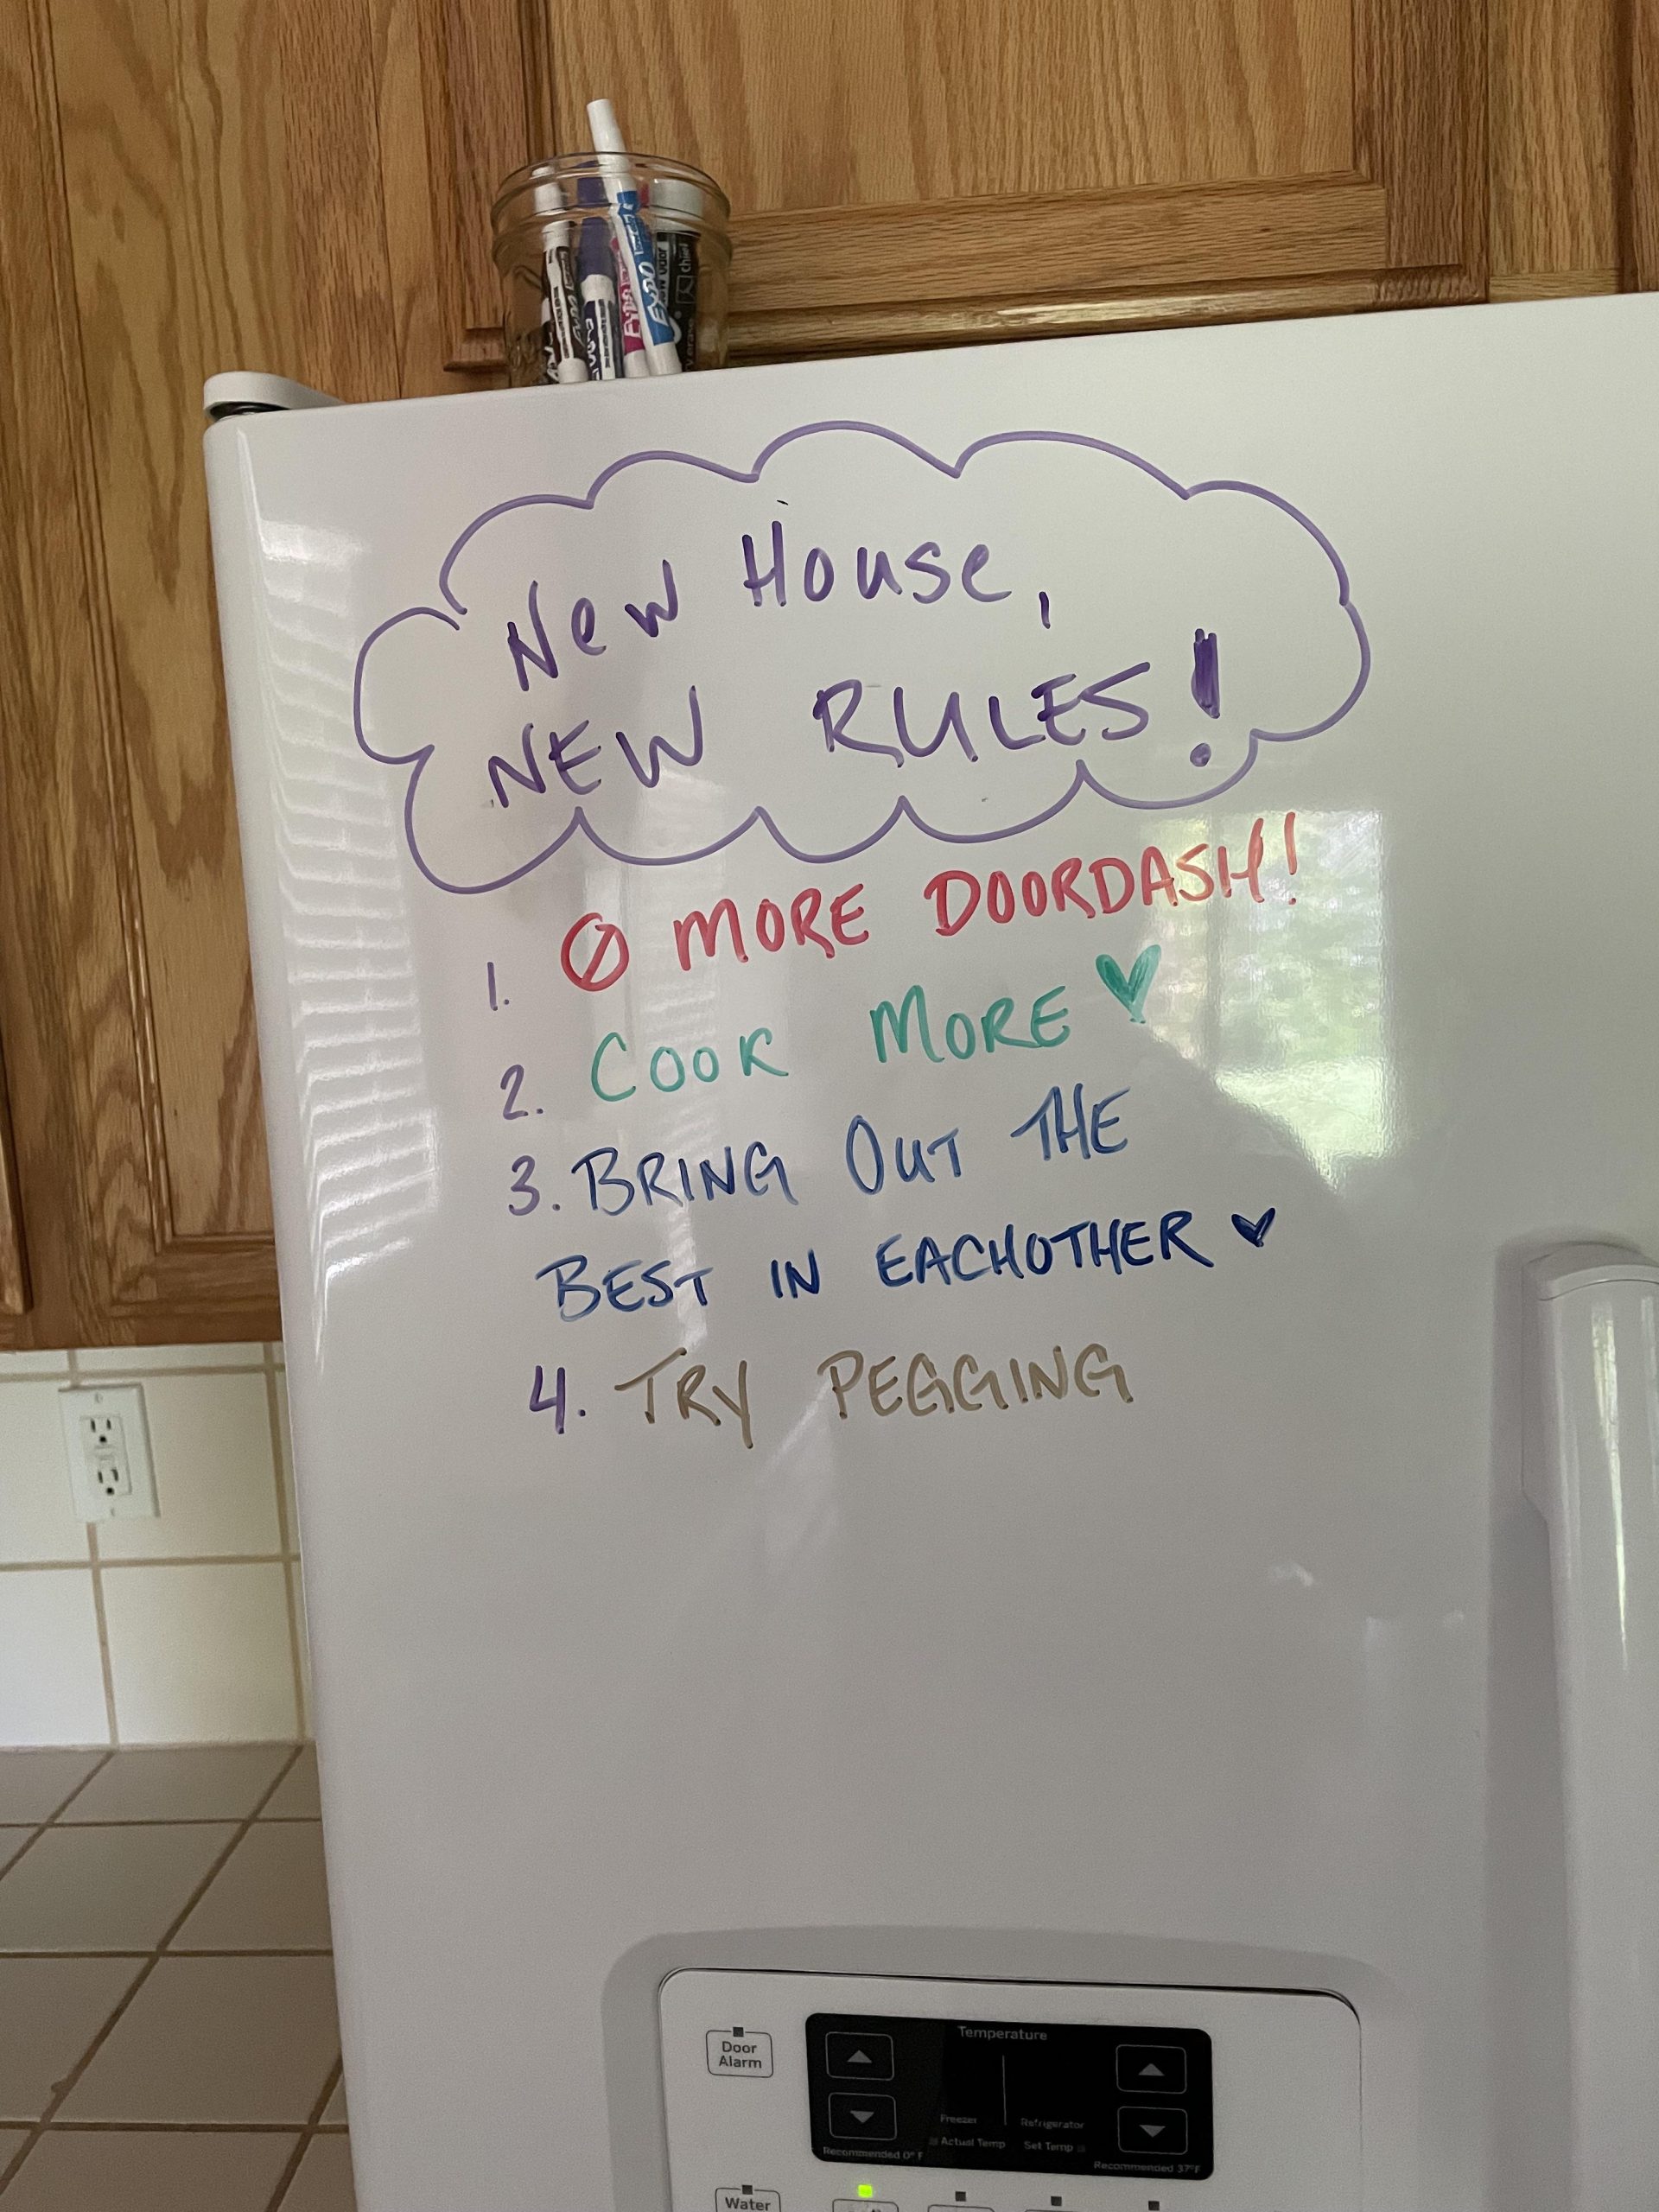 New House,
NEW RULES!
1. Ø MORE DOORDASH!
2. COOK MORE ♥
3. BRING OUT THE
BEST IN EACHOTHER ♥
4. TRY PEGGING
Door
Alarm
Temperature
Freezer
Refrigerator
Actual Temp
Set Temp
Recommended 0° F
Recommended 37°F
Water
EXPO
EXPO